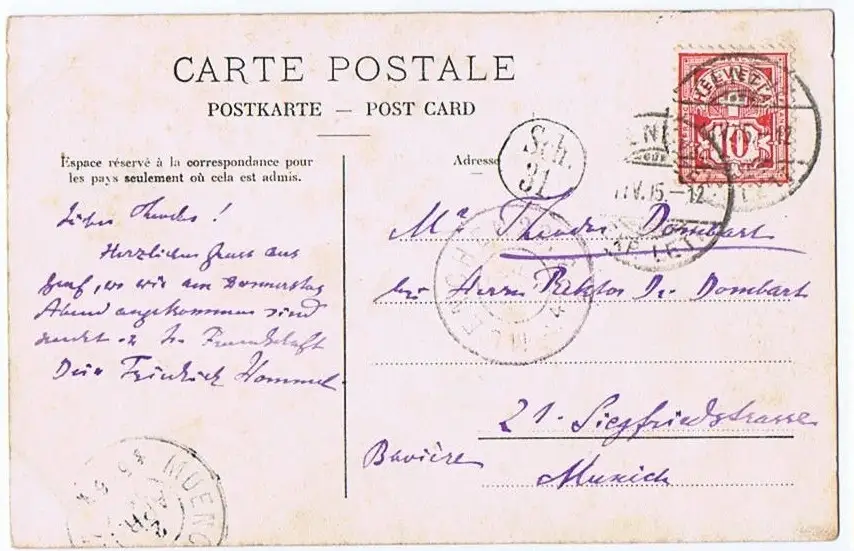 CARTE POSTALE
POSTKARTE — POST CARD
Espace réservé à la correspondance pour
les pays seulement où cela est admis.
Adresse
Sch.
31
HELVETIA
10
IV.05.–12
LETT
Lieber Theodor!
Herzlichen Gruss aus
Genf, wo wir am Donnerstag
Abend angekommen sind
sendet in Freundschaft
Dein Friedrich Hommel.
Mr Theodor Dombart
bei Herrn Rektor Dr. Dombart
21. Siegfriedstrasse
Bavière
Munich
MUENC
APR